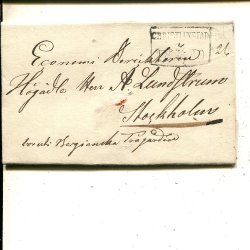 CHRISTINESTAD
Economi Directeuren
Högädle Herr A. Lundström
Stockholm
Bergianska Trägården